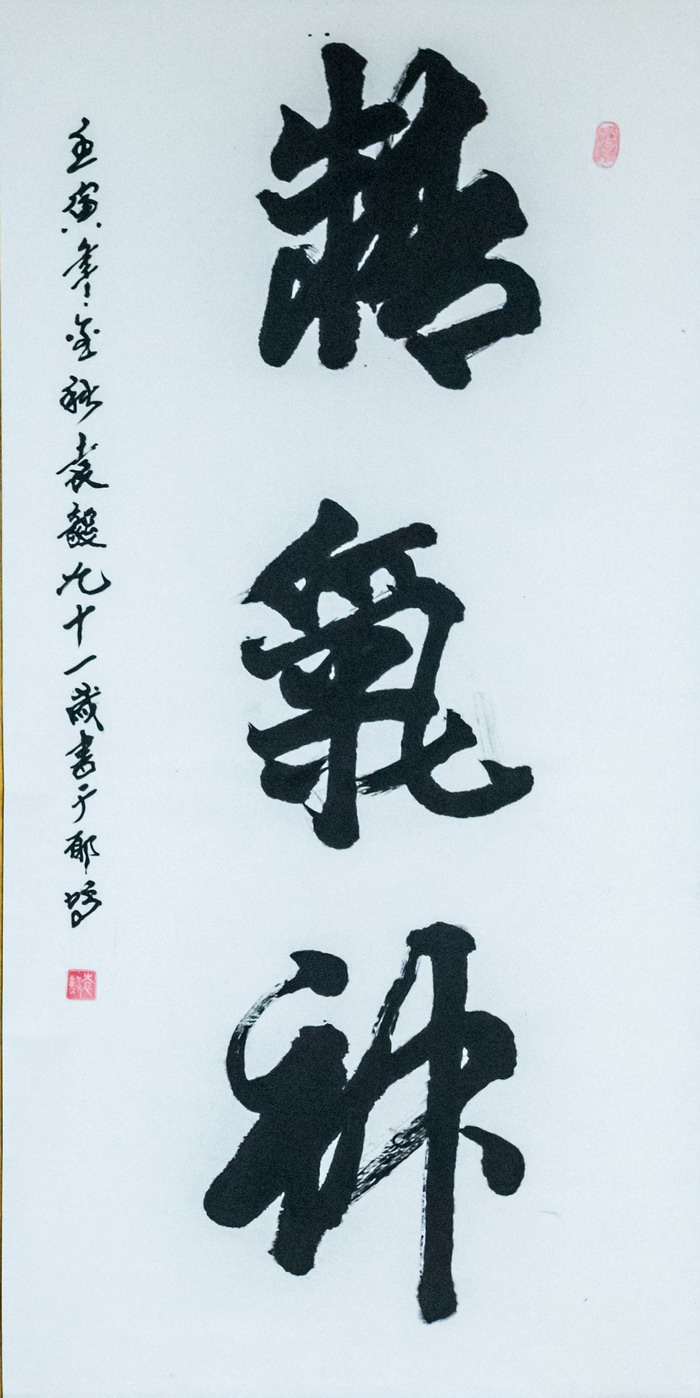 精氣神
壬寅年金秋袁毅九十一歲書于